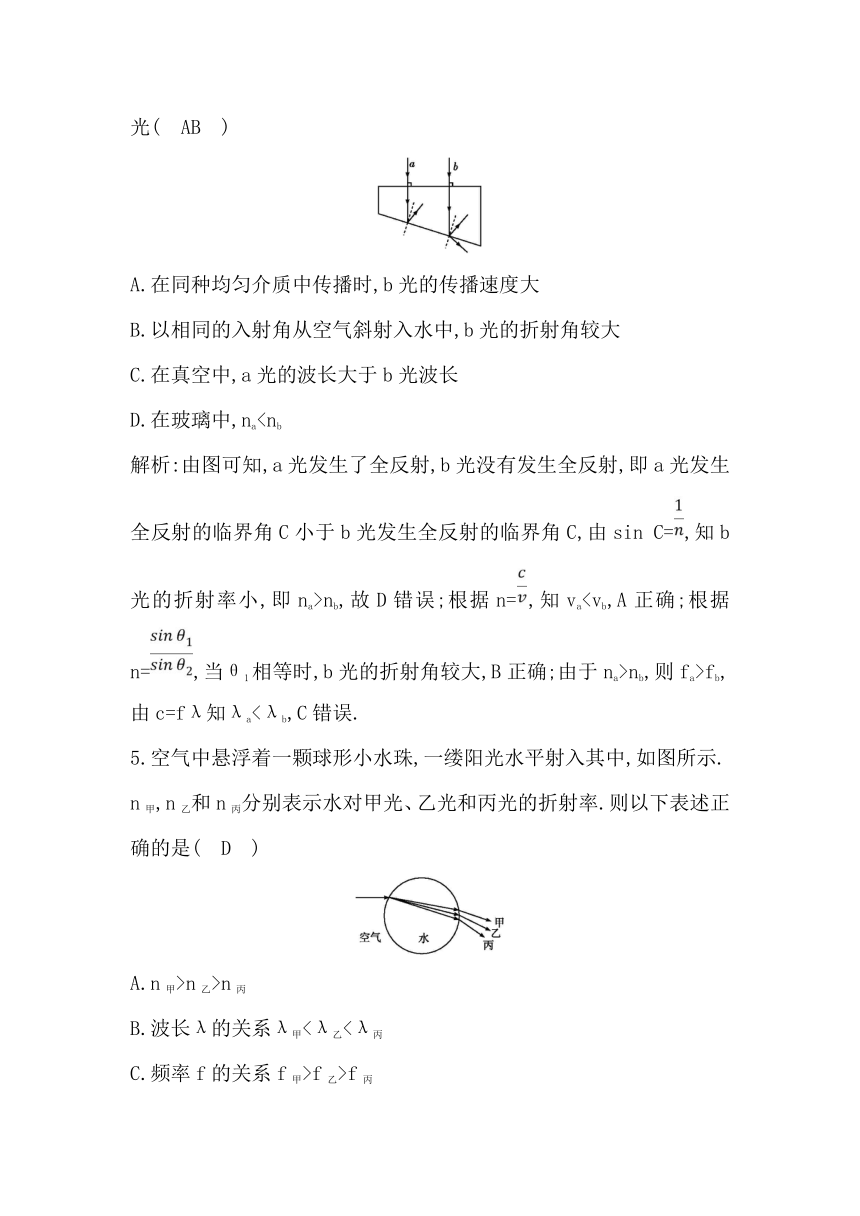 光( AB )
a
b
A.在同种均匀介质中传播时,b光的传播速度大
B.以相同的入射角从空气斜射入水中,b光的折射角较大
C.在真空中,a光的波长大于b光波长
D.在玻璃中,na<nb
解析:由图可知,a光发生了全反射,b光没有发生全反射,即a光发生
全反射的临界角C小于b光发生全反射的临界角C,由sin C=1/n,知b
光的折射率小,即na>nb,故D错误;根据n=c/v,知va<vb,A正确;根据
n=sin θ1/sin θ2,当θ1相等时,b光的折射角较大,B正确;由于na>nb,则fa>fb,
由c=fλ知λa<λb,C错误.
5.空气中悬浮着一颗球形小水珠,一缕阳光水平射入其中,如图所示.
n甲,n乙和n丙分别表示水对甲光、乙光和丙光的折射率.则以下表述正
确的是( D )
甲
乙
丙
空气 水
A.n甲>n乙>n丙
B.波长λ的关系λ甲<λ乙<λ丙
C.频率f的关系f甲>f乙>f丙